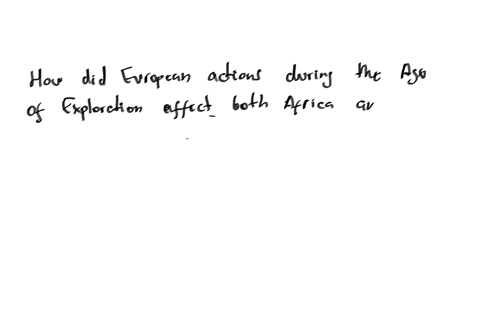 How did European actions during the Age
of Exploration affect both Africa an